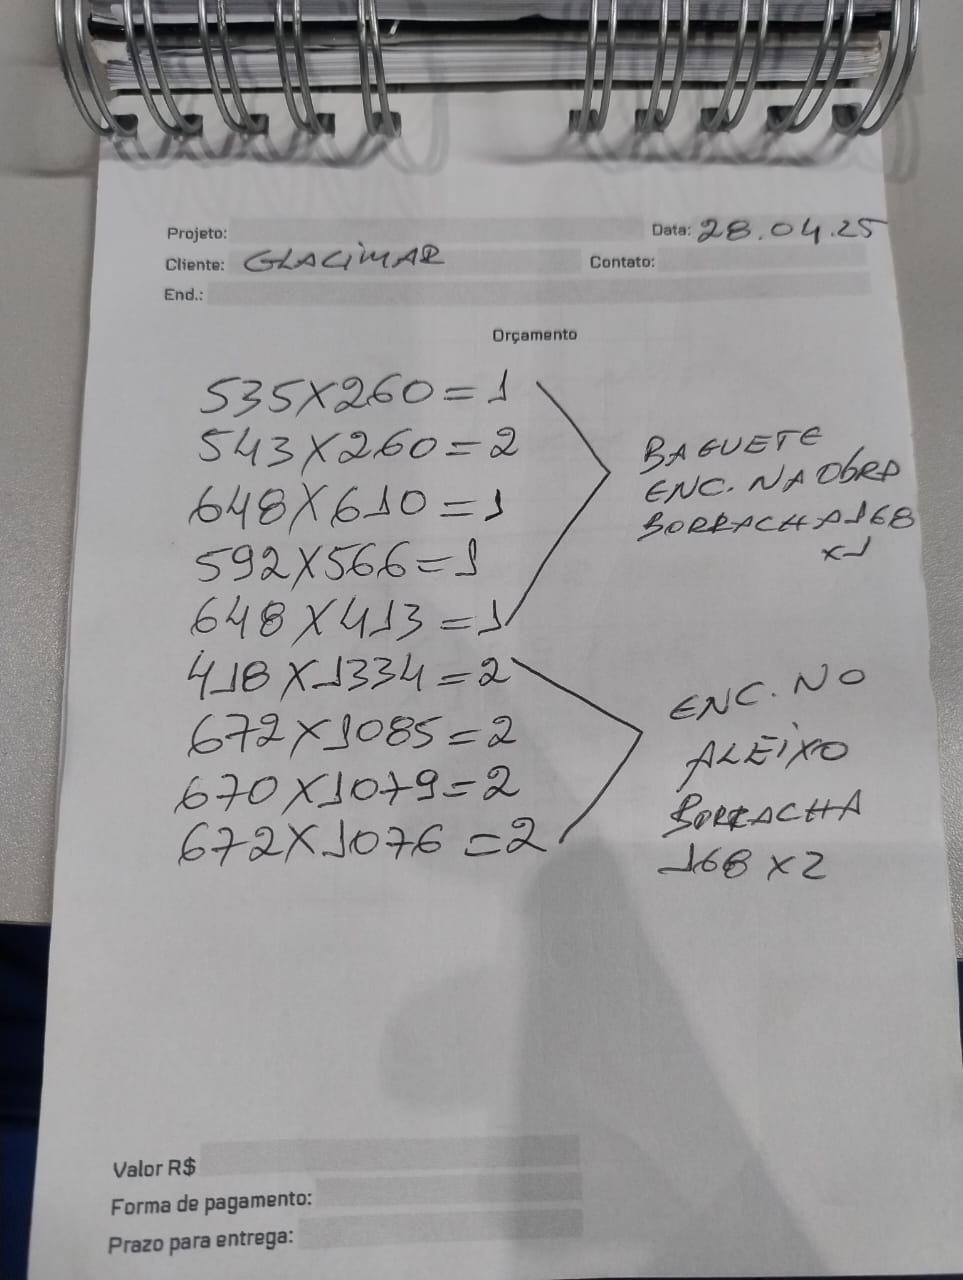 Projeto:
Data: 28.04.25
Cliente: GLACiMAR
Contato:
End.:
Orçamento
535X260=1
543X260=2
648X610=1
592X566=1
648X413=1
BAGUETE
ENC. NA OBRA
BORRACHA 168
x1
418X1334=2
672X1085=2
670X1079=2
672X1076=2
ENC. NO
ALEiXO
BORRACHA
168 x 2
Valor R$
Forma de pagamento:
Prazo para entrega: